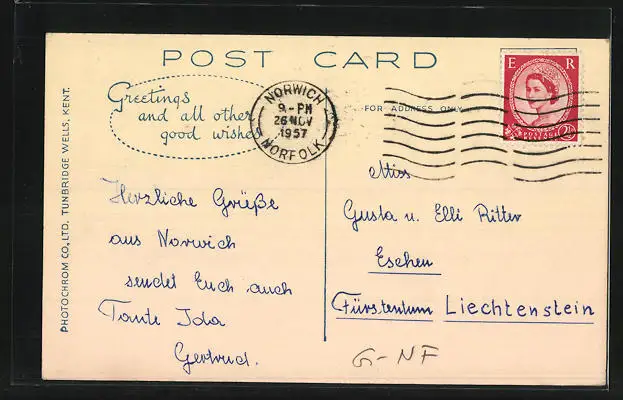 POST CARD
Greetings
and all other
good wishes
NORWICH
9-PM
26 NOV
1957
NORFOLK
FOR ADDRESS ONLY
E R
PHOTOCHROM CO., LTD. TUNBRIDGE WELLS, KENT.
Herzliche Grüße
aus Norwich
sendet Euch auch
Tante Ida
Gertrud.
Miss
Gusta u. Elli Ritter
Eschen
Fürstentum Liechtenstein
G-NF